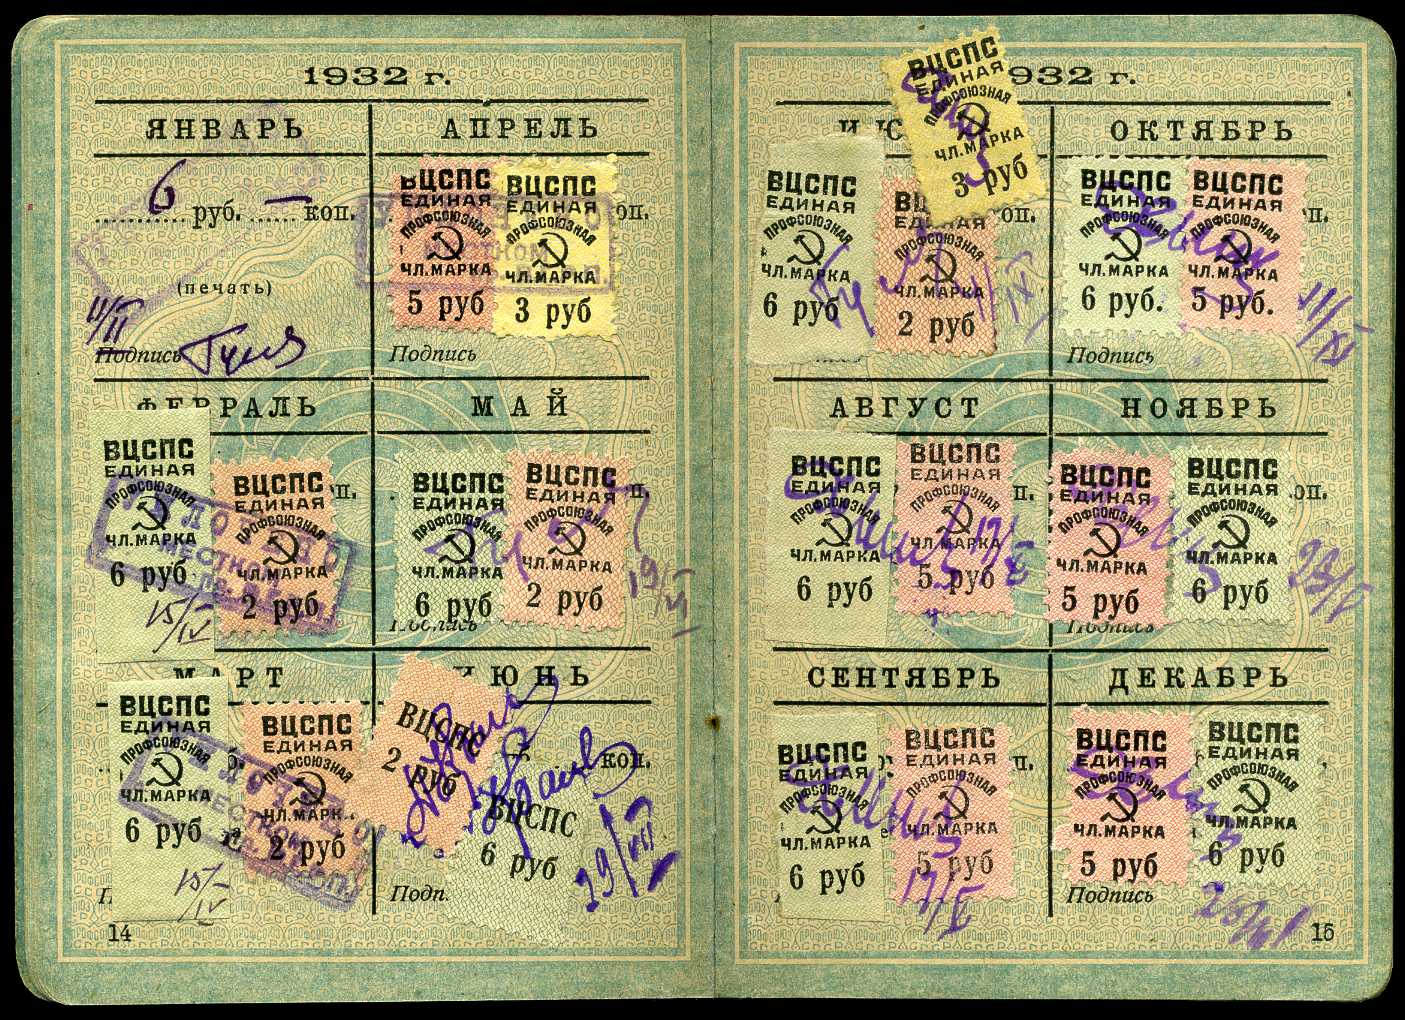 1932 г.
ЯНВАРЬ
6 руб. — коп.
(печать)
11/II
Подпись
АПРЕЛЬ
ВЦСПС
ЕДИНАЯ
ПРОФСОЮЗНАЯ
ЧЛ.МАРКА
5 руб
ВЦСПС
ЕДИНАЯ
ПРОФСОЮЗНАЯ
ЧЛ.МАРКА
3 руб
оп.
Подпись
ФЕВРАЛЬ
ВЦСПС
ЕДИНАЯ
ПРОФСОЮЗНАЯ
ЧЛ.МАРКА
6 руб
15/IV
ВЦСПС
ЕДИНАЯ
ПРОФСОЮЗНАЯ
ЧЛ.МАРКА
2 руб
п.
МАЙ
ВЦСПС
ЕДИНАЯ
ПРОФСОЮЗНАЯ
ЧЛ.МАРКА
6 руб
ВЦСПС
ЕДИНАЯ
ПРОФСОЮЗНАЯ
ЧЛ.МАРКА
2 руб
п.
19/VI
Подпись
МАРТ
ВЦСПС
ЕДИНАЯ
ПРОФСОЮЗНАЯ
ЧЛ.МАРКА
6 руб
15/IV
ВЦСПС
ЕДИНАЯ
ПРОФСОЮЗНАЯ
ЧЛ.МАРКА
2 руб
ИЮНЬ
ВЦСПС
2 руб
ВЦСПС
6 руб
коп.
29/VII
Подп.
14
932 г.
ВЦСПС
ЕДИНАЯ
ПРОФСОЮЗНАЯ
ЧЛ.МАРКА
3 руб
ИЮ
ВЦСПС
ЕДИНАЯ
ПРОФСОЮЗНАЯ
ЧЛ.МАРКА
6 руб
ЕДИНАЯ
ПРОФСОЮЗНАЯ
ЧЛ.МАРКА
2 руб
оп.
ОКТЯБРЬ
ВЦСПС
ЕДИНАЯ
ПРОФСОЮЗНАЯ
ЧЛ.МАРКА
6 руб.
ВЦСПС
ЕДИНАЯ
ПРОФСОЮЗНАЯ
ЧЛ.МАРКА
5 руб.
п.
11/XI
Подпись
АВГУСТ
ВЦСПС
ЕДИНАЯ
ПРОФСОЮЗНАЯ
ЧЛ.МАРКА
6 руб
ВЦСПС
ЕДИНАЯ
ПРОФСОЮЗНАЯ
ЧЛ.МАРКА
5 руб
п.
НОЯБРЬ
ВЦСПС
ЕДИНАЯ
ПРОФСОЮЗНАЯ
ЧЛ.МАРКА
5 руб
ВЦСПС
ЕДИНАЯ
ПРОФСОЮЗНАЯ
ЧЛ.МАРКА
6 руб
оп.
Подпись
СЕНТЯБРЬ
ВЦСПС
ЕДИНАЯ
ПРОФСОЮЗНАЯ
ЧЛ.МАРКА
6 руб
ВЦСПС
ЕДИНАЯ
ПРОФСОЮЗНАЯ
ЧЛ.МАРКА
5 руб
п.
ДЕКАБРЬ
ВЦСПС
ЕДИНАЯ
ПРОФСОЮЗНАЯ
ЧЛ.МАРКА
5 руб
ВЦСПС
ЕДИНАЯ
ПРОФСОЮЗНАЯ
ЧЛ.МАРКА
6 руб
Подпись
15